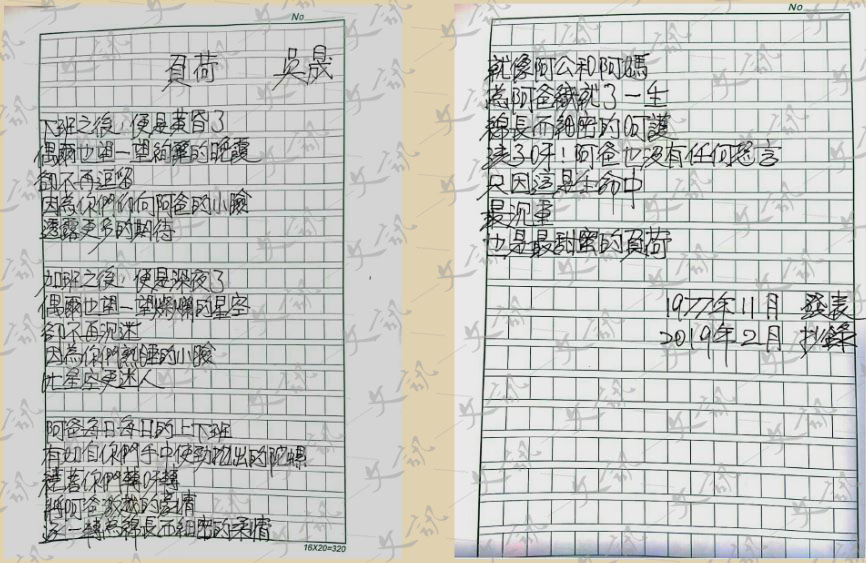 No
負荷 吳晟
下班之後，便是黃昏了
偶爾也望一望絢麗的晚霞
卻不再逗留
因為你們仰向阿爸的小臉
透露更多的期待
加班之後，便是深夜了
偶爾也望一望燦爛的星空
卻不再沉迷
因為你們熟睡的小臉
比星空更迷人
阿爸每日每日的上下班
有如自你們手中使勁拋出的陀螺
繞著你們轉呀轉
將阿爸激越的豪情
逐一轉為綿長而細密的柔情
16X20=320
No
就像阿公和阿媽
為阿爸織就了一生
綿長而細密的呵護
孩子呀！阿爸也沒有任何怨言
只因這是生命中
最沉重
也是最甜蜜的負荷
1977年11月 發表
2019年2月 抄錄